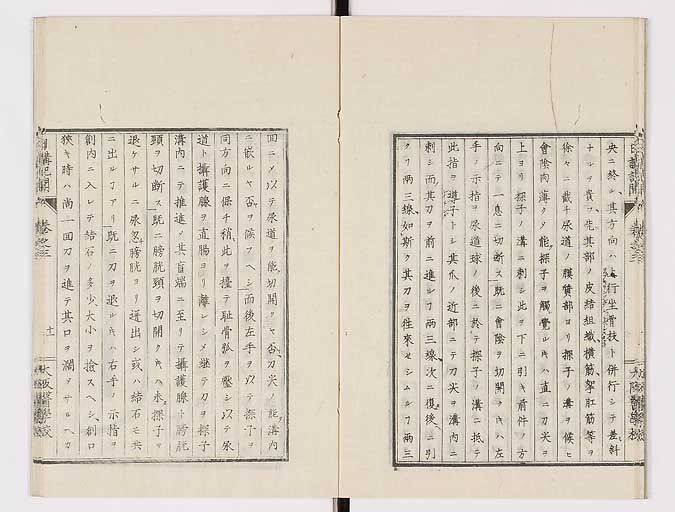 央ニ終ル、其方向ハ行坐骨枝ト併行シテ差斜
ナルヲ貴フ、先其部ノ皮結組織横筋挙肛筋等ヲ
徐々ニ截チ尿道ノ膜質部ヨリ探子ノ溝ヲ候ヒ
會陰肉薄クメ能探子ヲ觸覺ルキハ直ニ刀尖ヲ
上ヨリ探子ノ溝ニ刺シ此ヲ下ニ引キ前件ノ方
向ニテ一息ニ切断ス既ニ會陰ヲ切開クキハ左
手ノ示指ヲ尿道球ノ後ニ於テ探子ノ溝ニ抵テ
此指ヲ導子トシ其爪ノ近部ニテ刀尖ヲ溝ニ
刺シ而其刀ヲ前ニ進ルフ両三線次ニ復後ニ引
クフ両三線、如斯ク其刀ヲ徃來セシムルフ両三
回ニメ以テ尿道ヲ能切開クヤ否、刀尖ノ能溝内
ニ嵌ルヤ否ヲ候フヘシ而後左手ヲ以テ探子ヲ
同方向ニ保チ稍此ヲ擡テ耻骨弧ヲ壓シ以テ尿
道ト攝護腺ヲ直腸ヨリ離レシメ継テ刀ヲ探子
溝内ニテ推進メ其盲端ニ至リテ攝護腺ト膀胱
頸ヲ切断ス既ニ膀胱頸ヲ切開クキハ未探子ヲ
退ケサルニ尿忽膀胱ヨリ迸出シ或ハ結石モ共
ニ出ルフアリ既ニ刀ヲ退ルキハ右手ノ示指ヲ
創内ニ入レテ結石ノ多少大小ヲ撿スヘシ創口
狹キ時ハ尚一回刀ヲ進テ其口ヲ濶メサルヘカ
日講記聞
巻之三
十一
大阪醫學校